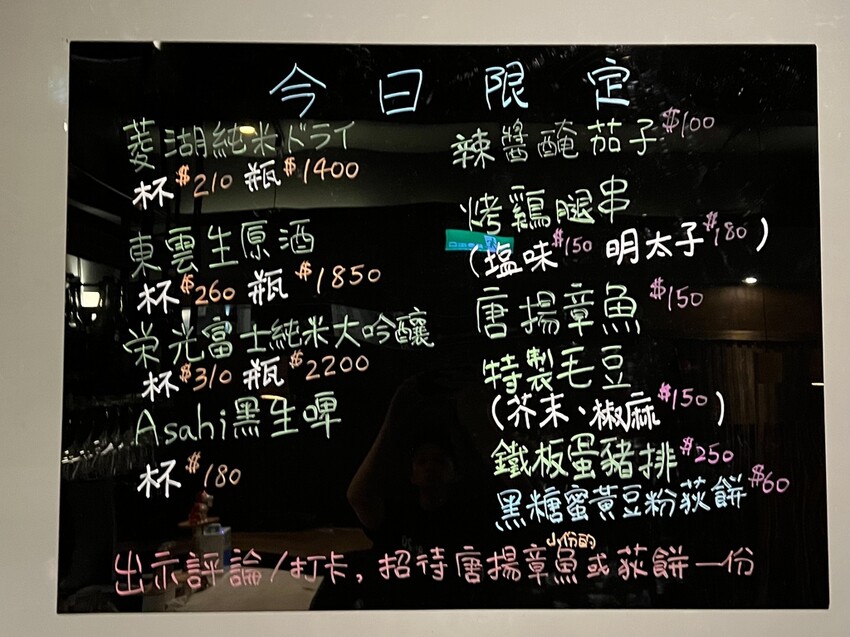 今日限定
菱湖純米ドライ
杯$210 瓶$1400
東雲生原酒
杯$260 瓶$1850
栄光富士純米大吟釀
杯$310 瓶$2200
Asahi黑生啤
杯$180
辣醬醃茄子$100
烤鷄腿串
(塩味$150 明太子$180)
唐揚章魚$150
特製毛豆
(芥末、椒麻$150)
鐵板蛋豬排$250
黑糖蜜黃豆粉荻餅$60
小份的
出示評論/打卡,招待唐揚章魚或荻餅一份